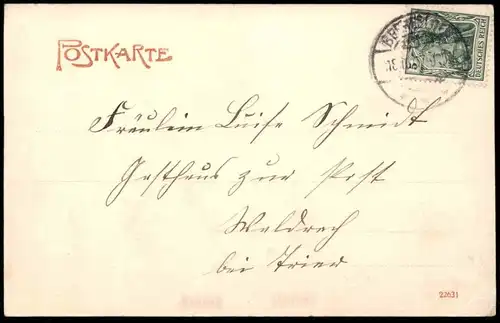 POSTKARTE
DEUTSCHES REICH
Fräulein Luise Schmidt
Gasthaus zur Post
Waldrach
bei Trier
22631